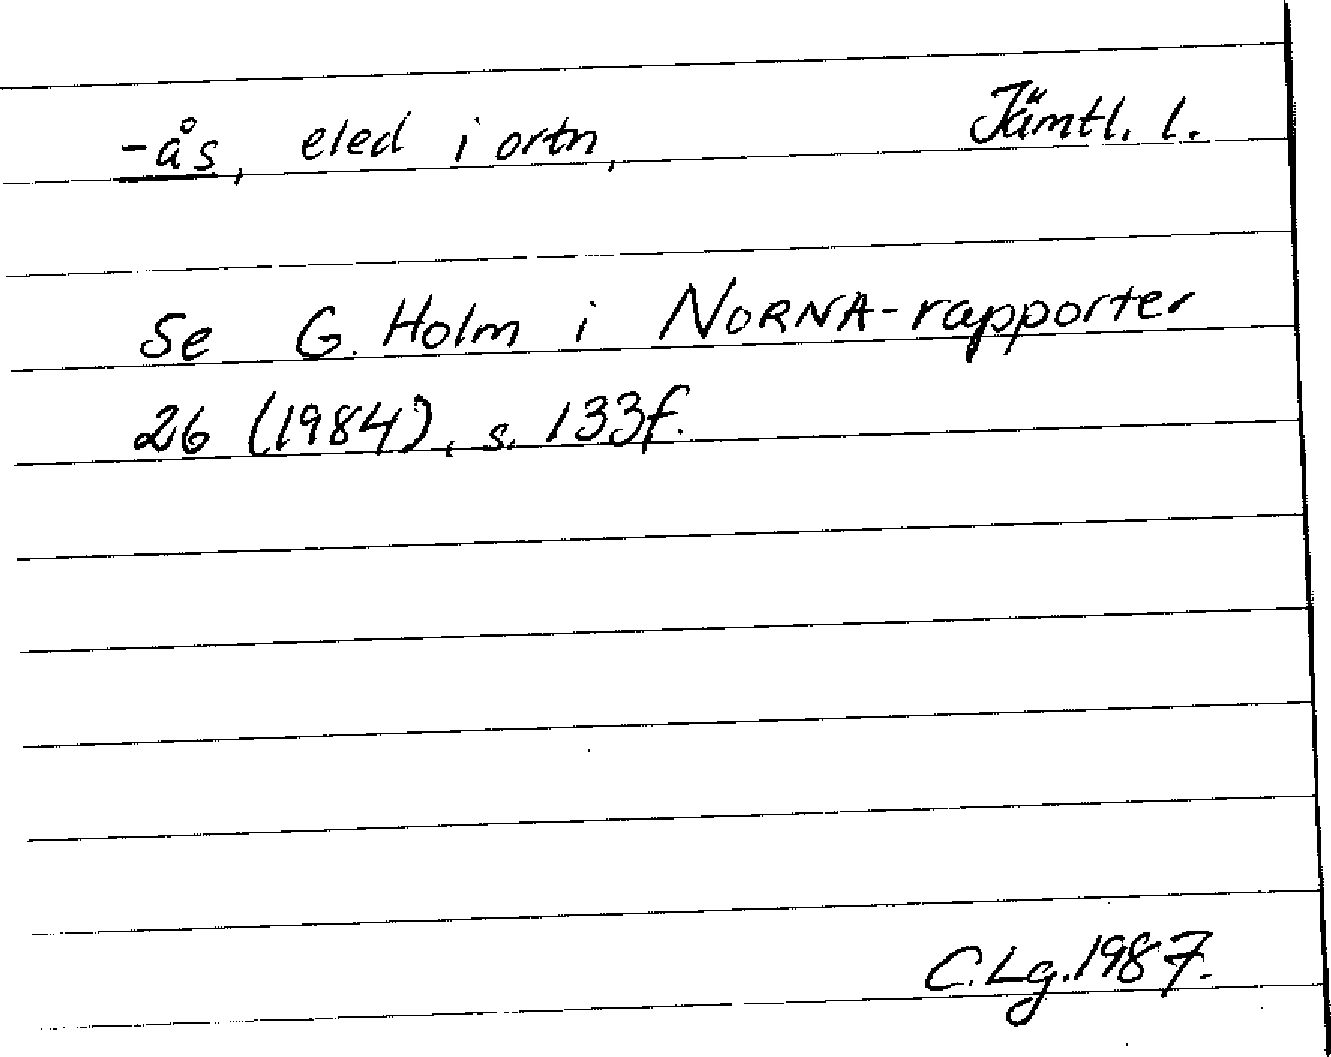 -ås, eled i ortn, Jämtl. l.
Se G. Holm i NORNA-rapporter
26 (1984), s. 133f.
C.Lg.1987.